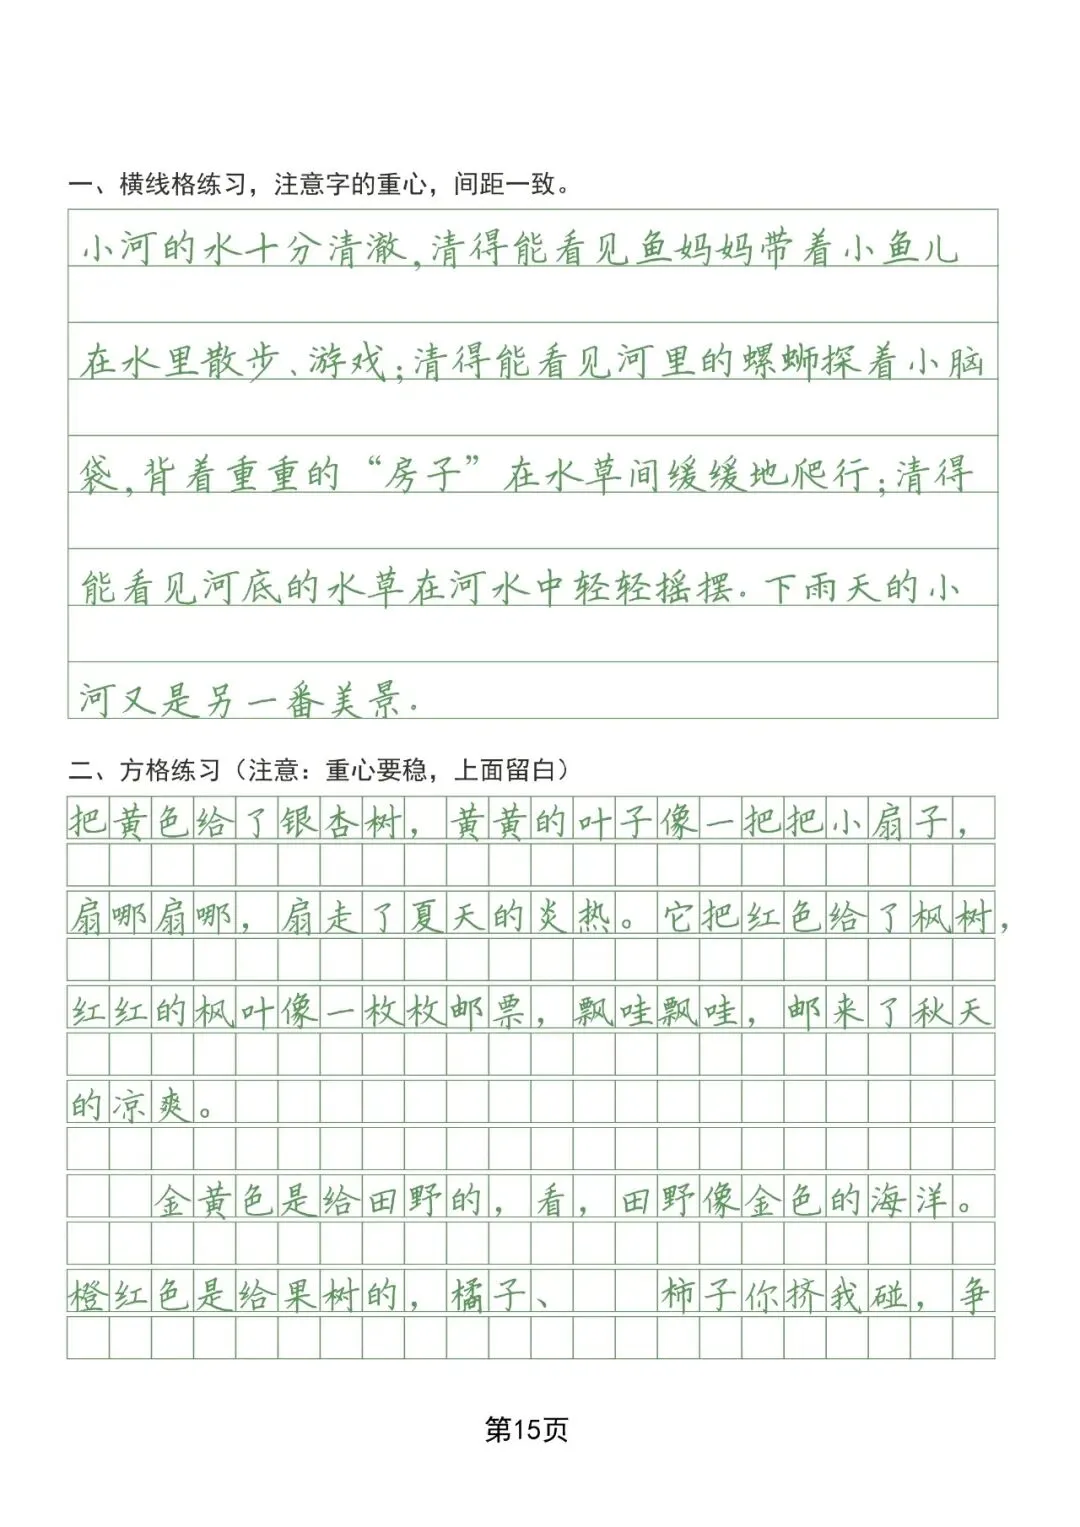 一、横线格练习，注意字的重心，间距一致。
小河的水十分清澈,清得能看见鱼妈妈带着小鱼儿
在水里散步、游戏;清得能看见河里的螺蛳探着小脑
袋,背着重重的“房子”在水草间缓缓地爬行;清得
能看见河底的水草在河水中轻轻摇摆.下雨天的小
河又是另一番美景.
二、方格练习（注意：重心要稳，上面留白）
把黄色给了银杏树，黄黄的叶子像一把把小扇子，
扇哪扇哪，扇走了夏天的炎热。它把红色给了枫树，
红红的枫叶像一枚枚邮票，飘哇飘哇，邮来了秋天
的凉爽。
金黄色是给田野的，看，田野像金色的海洋。
橙红色是给果树的，橘子、 柿子你挤我碰，争
第15页